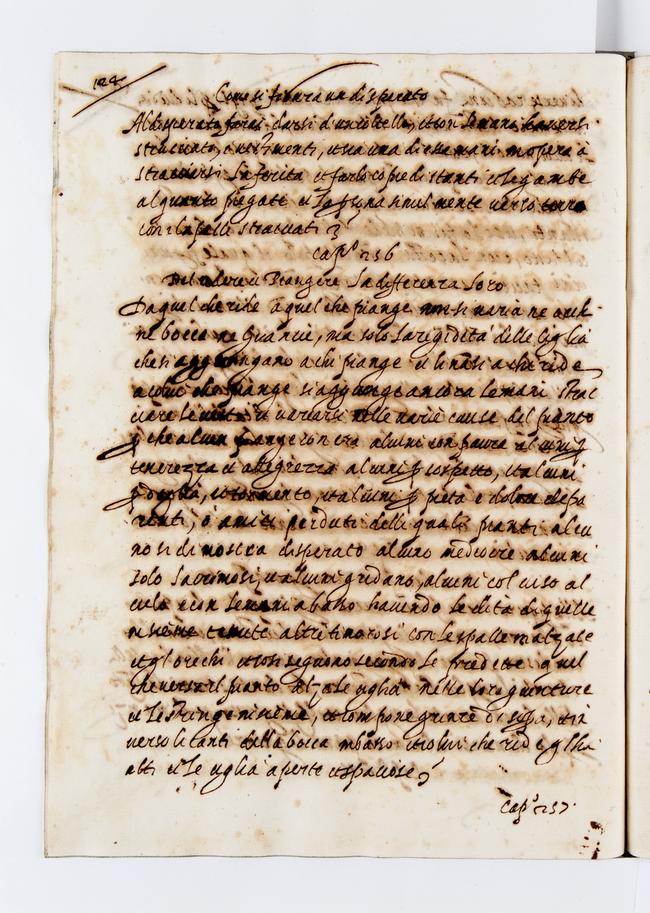 124
Come si figura un disperato
Al disperato farai darsi d'un coltello, et con le mani haversi
stracciato, i vestimenti, et sia una di esse mani in opera à
stracciarsi la ferita et farlo co piedi stanti et le gambe
alquanto piegate et la persona similmente verso terra
con capelli stracciati
Cap.º 256
Del ridere et Piangere et la differenza loro
Da quel che ride à quel che piange non si varia ne occhi
ne bocca ne Guancie, ma solo la rigidità delle Ciglia
che si aggiungano a chi piange et levasi a chi ride
a colui che piange si aggiunge ancora le mani strac
ciare le veste et variarsi nelle varie cause del pianto
p che alcun piange con ira alcuni con paura alcuni p
tenerezza et allegrezza alcuni p sospetto, et alcuni
p doglia, et tormento, et alcuni p pietà e dolore de pa
renti, ò amici perduti delli quali pianti alcu
no si dimostra disperato alcuno mediocre alcuni
solo lacrimosi, et alcuni gridano, alcuni col viso al
cielo e con le mani a basso havendo le dita di quelle
insieme tenute altri timorosi con le spalle inalzate
et gl'orechi et cosi seguono secondo le predette quel
che versa il pianto Alza le ciglia nelle loro gionture
et le stringe insieme, et compone grinze di sopra, et in
verso li canti della bocca in basso et colui che ride gl'ha
alti et le ciglia aperte et spatiose
Cap.º 257.